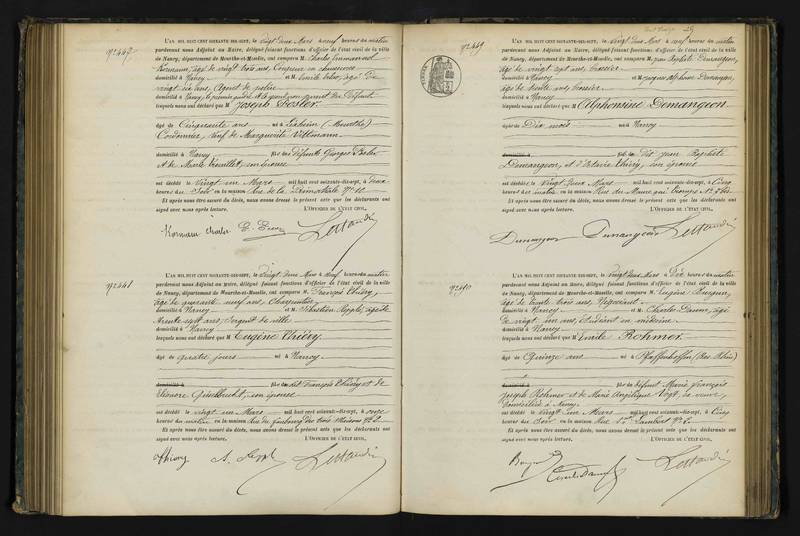 N° 447
L'AN MIL HUIT CENT SOIXANTE-DIX-SEPT, le vingt deux Mars à neuf heures du matin
pardevant nous Adjoint au Maire, délégué faisant fonctions d'officier de l'état civil de la ville
de Nancy, département de Meurthe-et-Moselle, ont comparu M. Charles Emmanuel
Kormann, âgé de vingt trois ans,
domicilié à Nancy et M. Emile âgé de
vingt six ans, Agent de police
domicilié à Nancy, le premier gendre et le second non parent du défunt
lesquels nous ont déclaré que M. Joseph Besler
âgé de Cinquante ans né à Lixheim (Meurthe)
Cordonnier, veuf de Marguerite Viltmann
domicilié à Nancy fils des défunts Georges Besler
et de Marie son épouse
est décédé le Vingt un Mars mil huit cent soixante-dix-sept, à deux
heures du Soir en la maison Rue de la Primatiale N° 10
Et après nous être assuré du décès, nous avons dressé le présent acte que les déclarants ont
signé avec nous après lecture. L'OFFICIER DE L'ÉTAT CIVIL,
Kormann Charles
N° 448
L'AN MIL HUIT CENT SOIXANTE-DIX-SEPT, le vingt deux Mars à neuf heures du matin
pardevant nous Adjoint au Maire, délégué faisant fonctions d'officier de l'état civil de la ville
de Nancy, département de Meurthe-et-Moselle, ont comparu M. François Thiéry,
âgé de quarante neuf ans, Charpentier
domicilié à Nancy et M. Sébastien Repplé, âgé de
trente sept ans, Sergent de ville
domicilié à Nancy
lesquels nous ont déclaré que M. Eugène Thiéry
âgé de quatre jours né à Nancy
domicilié à fils de dit François Thiéry et de
Eléonore son épouse
est décédé le vingt un Mars mil huit cent soixante-dix-sept, à onze
heures du matin en la maison Rue du faubourg des trois Maisons N° 2
Et après nous être assuré du décès, nous avons dressé le présent acte que les déclarants ont
signé avec nous après lecture. L'OFFICIER DE L'ÉTAT CIVIL,
Thiéry
N° 449
L'AN MIL HUIT CENT SOIXANTE-DIX-SEPT, le vingt deux Mars à neuf heures du matin
pardevant nous Adjoint au Maire, délégué faisant fonctions d'officier de l'état civil de la ville
de Nancy, département de Meurthe-et-Moselle, ont comparu M. Jean Baptiste Demangeon,
âgé de vingt sept ans,
domicilié à Nancy et M. Jacques Alphonse Demangeon,
âgé de trente ans,
domicilié à Nancy
lesquels nous ont déclaré que M. Alphonsine Demangeon
âgée de Dix mois née à Nancy
domicilié à fille de Dit Jean Baptiste
Demangeon, et d'Octavie Thiéry, son épouse
est décédée le Vingt deux Mars mil huit cent soixante-dix-sept, à Cinq
heures du matin en la maison Rue du
Et après nous être assuré du décès, nous avons dressé le présent acte que les déclarants ont
signé avec nous après lecture. L'OFFICIER DE L'ÉTAT CIVIL,
Demangeon Demangeon
N° 450
L'AN MIL HUIT CENT SOIXANTE-DIX-SEPT, le vingt deux Mars à Dix heures du matin
pardevant nous Adjoint au Maire, délégué faisant fonctions d'officier de l'état civil de la ville
de Nancy, département de Meurthe-et-Moselle, ont comparu M. Eugène
âgé de trente trois ans, Négociant
domicilié à Nancy et M. Charles Daum, âgé
de vingt un ans, Etudiant en médecine
domicilié à Nancy
lesquels nous ont déclaré que M. Emile Rohmer
âgé de Quinze ans né à Pfaffenhoffen (Bas Rhin)
domicilié à fils de défunt Marie François
Joseph Rohmer et de Marie Angélique Vogt, sa veuve,
domiciliée à Nancy
est décédé le Vingt un Mars mil huit cent soixante-dix-sept, à Cinq
heures du Soir en la maison Rue St Lambert N° 6
Et après nous être assuré du décès, nous avons dressé le présent acte que les déclarants ont
signé avec nous après lecture. L'OFFICIER DE L'ÉTAT CIVIL,